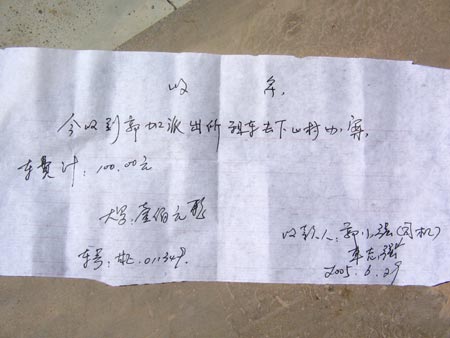 收 条.
今收到郭 派出所租车去下山村办案.
车费计: 100.00元
大写: 壹佰元整
收款人: 郭小强(司机)
车号: 011349.
2005.6.29